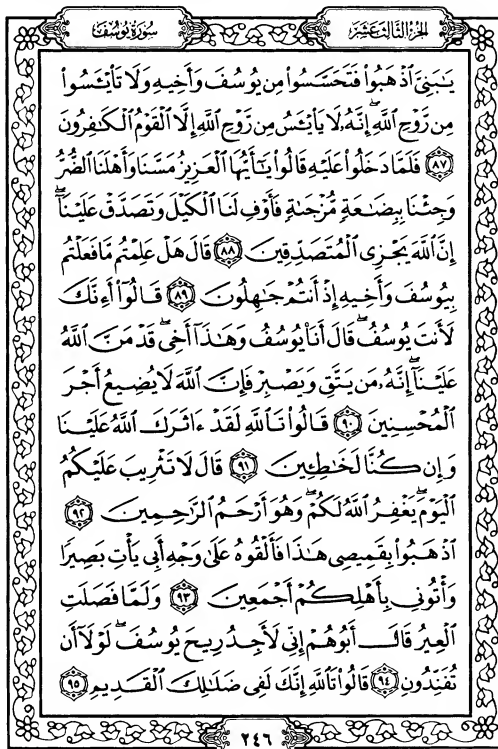 الجزء الثالث عشر
سورة يوسف
يَٰبَنِيَّ ٱذْهَبُوا۟ فَتَحَسَّسُوا۟ مِن يُوسُفَ وَأَخِيهِ وَلَا تَا۟يْـَٔسُوا۟
مِن رَّوْحِ ٱللَّهِ ۖ إِنَّهُۥ لَا يَا۟يْـَٔسُ مِن رَّوْحِ ٱللَّهِ إِلَّا ٱلْقَوْمُ ٱلْكَٰفِرُونَ
٨٧ فَلَمَّا دَخَلُوا۟ عَلَيْهِ قَالُوا۟ يَٰٓأَيُّهَا ٱلْعَزِيزُ مَسَّنَا وَأَهْلَنَا ٱلضُّرُّ
وَجِئْنَا بِبِضَٰعَةٍ مُّزْجَىٰةٍ فَأَوْفِ لَنَا ٱلْكَيْلَ وَتَصَدَّقْ عَلَيْنَآ ۖ
إِنَّ ٱللَّهَ يَجْزِى ٱلْمُتَصَدِّقِينَ ٨٨ قَالَ هَلْ عَلِمْتُم مَّا فَعَلْتُم
بِيُوسُفَ وَأَخِيهِ إِذْ أَنتُمْ جَٰهِلُونَ ٨٩ قَالُوٓا۟ أَءِنَّكَ
لَأَنتَ يُوسُفُ ۖ قَالَ أَنَا۠ يُوسُفُ وَهَٰذَآ أَخِى ۖ قَدْ مَنَّ ٱللَّهُ
عَلَيْنَآ ۖ إِنَّهُۥ مَن يَتَّقِ وَيَصْبِرْ فَإِنَّ ٱللَّهَ لَا يُضِيعُ أَجْرَ
ٱلْمُحْسِنِينَ ٩٠ قَالُوا۟ تَٱللَّهِ لَقَدْ ءَاثَرَكَ ٱللَّهُ عَلَيْنَا
وَإِن كُنَّا لَخَٰطِـِٔينَ ٩١ قَالَ لَا تَثْرِيبَ عَلَيْكُمُ
ٱلْيَوْمَ ۖ يَغْفِرُ ٱللَّهُ لَكُمْ ۖ وَهُوَ أَرْحَمُ ٱلرَّٰحِمِينَ ٩٢
ٱذْهَبُوا۟ بِقَمِيصِى هَٰذَا فَأَلْقُوهُ عَلَىٰ وَجْهِ أَبِى يَأْتِ بَصِيرًا
وَأْتُونِى بِأَهْلِكُمْ أَجْمَعِينَ ٩٣ وَلَمَّا فَصَلَتِ
ٱلْعِيرُ قَالَ أَبُوهُمْ إِنِّى لَأَجِدُ رِيحَ يُوسُفَ ۖ لَوْلَآ أَن
تُفَنِّدُونِ ٩٤ قَالُوا۟ تَٱللَّهِ إِنَّكَ لَفِى ضَلَٰلِكَ ٱلْقَدِيمِ ٩٥
٢٤٦